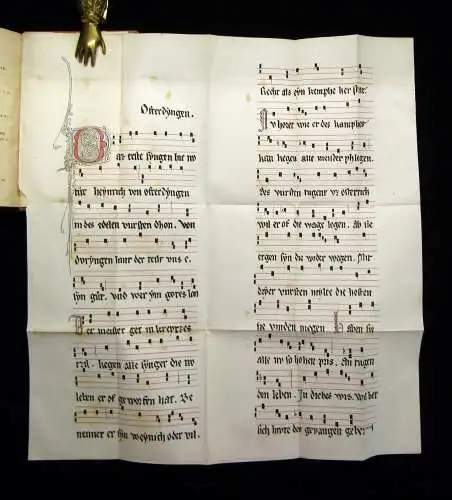 Ofterdyngen.
Daz erste syngen hie nv
tůt Heynrich von ofterdyngen
in des edelen vursten dhon. Von
duryngen lant der teilt vns e.
syn gůt. vnd wer ym gotes lon
Der meister get in kreyzes
zil. kegen alle synger die nv
leben er of geworfen hat. Be
nenner er syn weynich oder vil.
Recht als eyn kemphe her stat.
Nv horet wie er des kamphes
kegen alle meister phlegen.
des vursten tugent vz osterrich
wil er of die wage legen. Ab sie
ergen syn die wider wegen. Mit
dryer vursten milte die hosten
sie vunden mogen Haben sie
alle nv so hohen pris. An tugen
den leben. In diebes wis. wil der
sich hivte des gevangen geben